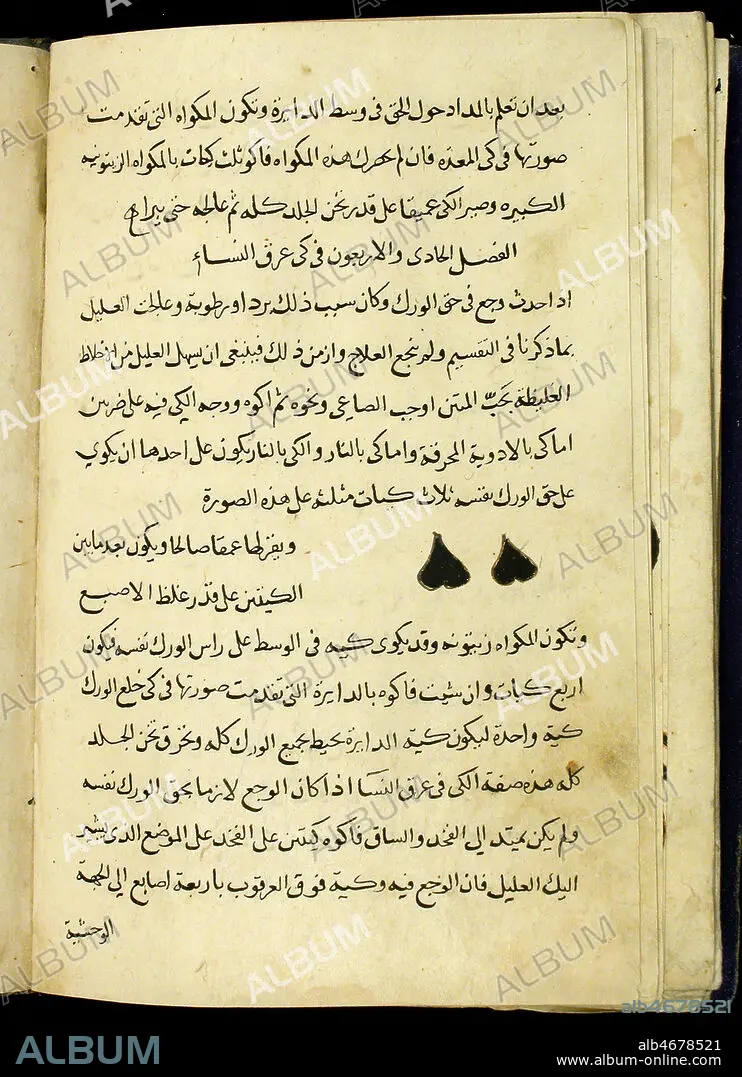 بعد ان تعلم بالمداد حول الحق فى وسط الدايرة وتكون المكواه التى تقدمت
صورتها فى كى المعده فان لم يحضرك هذه المكواه فاكو ثلث كيات بالمكواه الزيتونيه
الكبيره وصير الكى عميقا على قدر ثخن الجلد كله ثم عالجه حتى يبرا
الفصل الحادى والاربعون فى كى عرق النساء
اذا حدث وجع فى حق الورك وكان سبب ذلك برد او رطوبة وعالجت العليل
بما ذكرنا فى التقسيم ولم ينجع العلاج وازمن ذلك فينبغى ان يسهل العليل من الاخلاط
الغليظة بحبّ المنتن او حب الصناعى ونحوه ثم اكوه ووجه الكى فيه على ضربين
اما كى بالادوية المحرقة واما كى بالنار والكى بالنار يكون على احدها ان يكوي
على حق الورك نفسه ثلاث كيات مثلثه على هذه الصورة
ويفرطا عمقا صالحا ويكون بعد مابين
الكيتين على قدر غلظ الاصبع
وتكون المكواه زيتونه وقد يكوى كيه فى الوسط على راس الورك نفسه فيكون
اربع كيات وان شيت فاكوه بالدايرة التى تقدمت صورتها فى كى خلع الورك
كية واحدة ليكون كية الدايرة يحيط بجميع الورك كله ويخرق ثخن الجلد
كله هذه صفة الكى فى عرق النسَا اذا كان الوجع لازما بحق الورك نفسه
ولم يكن يمتد الى الفخذ والساق فاكوه كيتين على الفخد على الموضع الدى يشير
اليك العليل فان الوجع فيه وكية فوق العرقوب باربعة اصابع الى الجهة
الوحشية
ALBUM
alb4678521
alb4678521
www.album-online.com